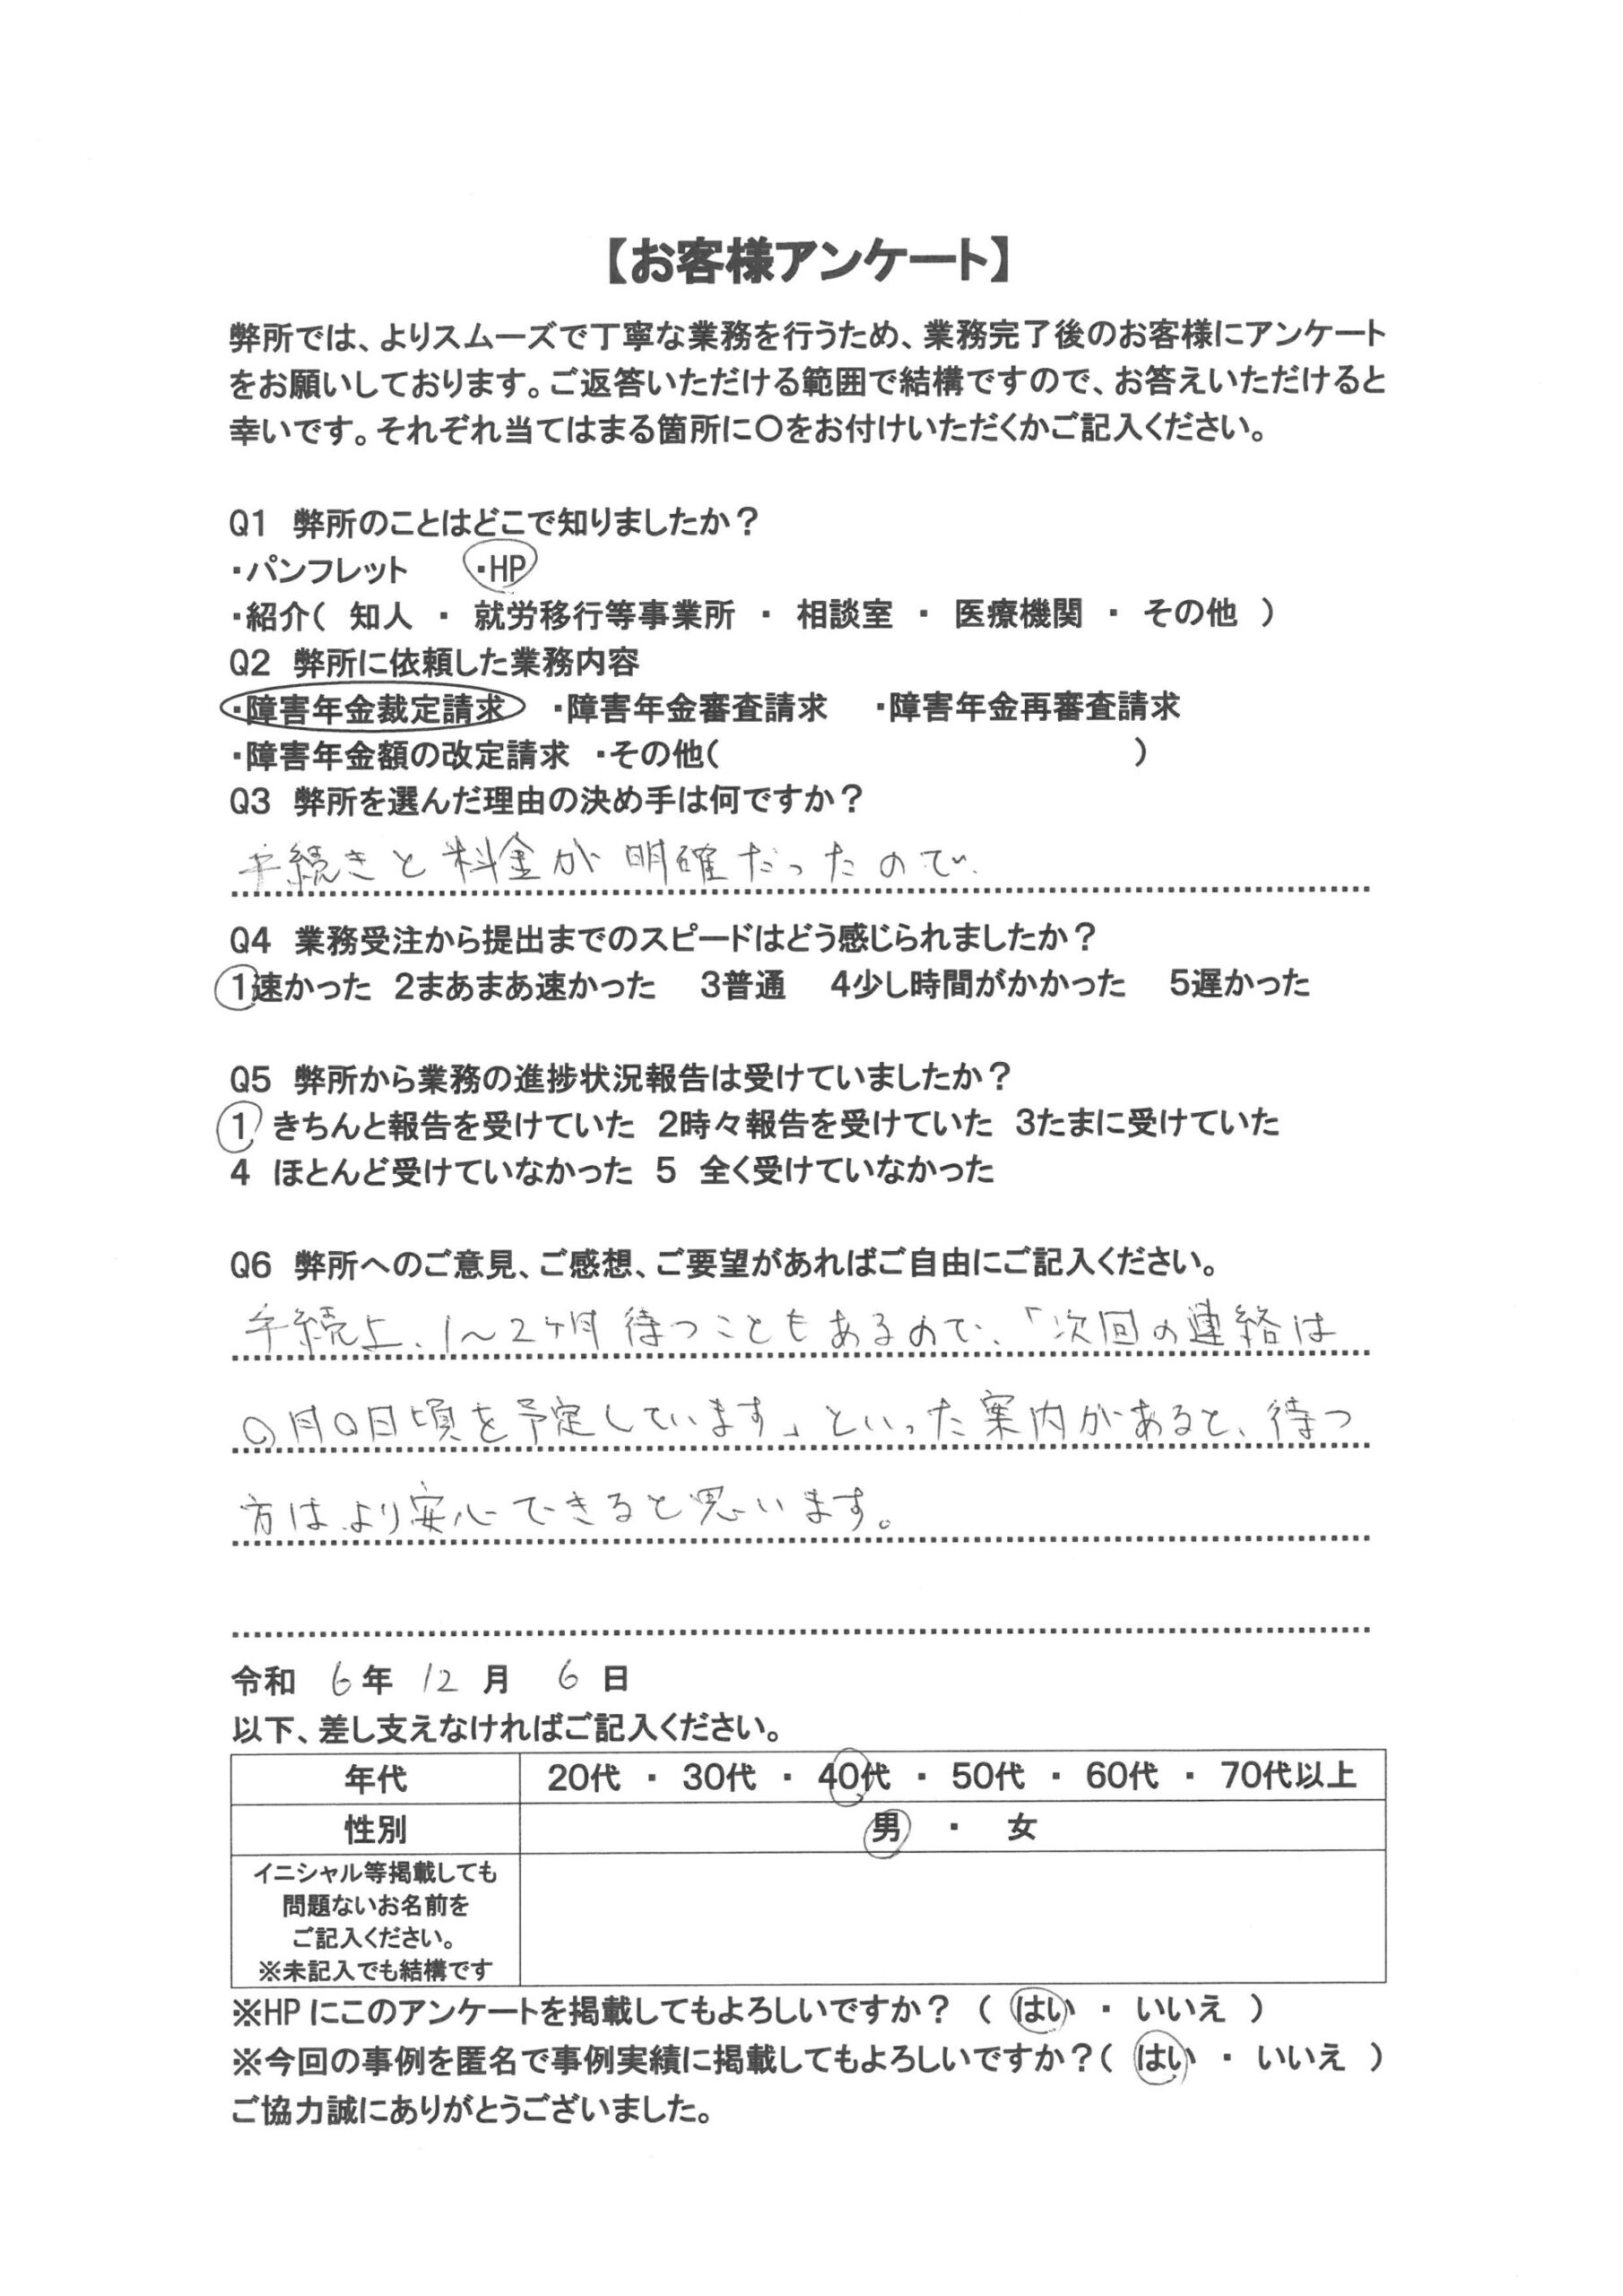 【お客様アンケート】
弊所では、よりスムーズで丁寧な業務を行うため、業務完了後のお客様にアンケート
をお願いしております。ご返答いただける範囲で結構ですので、お答えいただけると
幸いです。それぞれ当てはまる箇所に〇をお付けいただくかご記入ください。
Q1 弊所のことはどこで知りましたか？
・パンフレット ・HP
・紹介（ 知人 ・ 就労移行等事業所 ・ 相談室 ・ 医療機関 ・ その他 ）
Q2 弊所に依頼した業務内容
・障害年金裁定請求 ・障害年金審査請求 ・障害年金再審査請求
・障害年金額の改定請求 ・その他（ ）
Q3 弊所を選んだ理由の決め手は何ですか？
手続きと料金が明確だったので、
Q4 業務受注から提出までのスピードはどう感じられましたか？
1速かった 2まあまあ速かった 3普通 4少し時間がかかった 5遅かった
Q5 弊所から業務の進捗状況報告は受けていましたか？
1 きちんと報告を受けていた 2時々報告を受けていた 3たまに受けていた
4 ほとんど受けていなかった 5 全く受けていなかった
Q6 弊所へのご意見、ご感想、ご要望があればご自由にご記入ください。
手続上、1〜2ヶ月待つこともあるので、「次回の連絡は
〇月〇日頃を予定しています」といった案内があると、待つ
方はより安心できると思います。
令和 6年 12月 6日
以下、差し支えなければご記入ください。
年代 20代 ・ 30代 ・ 40代 ・ 50代 ・ 60代 ・ 70代以上
性別 男 ・ 女
イニシャル等掲載しても
問題ないお名前を
ご記入ください。
※未記入でも結構です
※HPにこのアンケートを掲載してもよろしいですか？（ はい ・ いいえ ）
※今回の事例を匿名で事例実績に掲載してもよろしいですか？（ はい ・ いいえ ）
ご協力誠にありがとうございました。